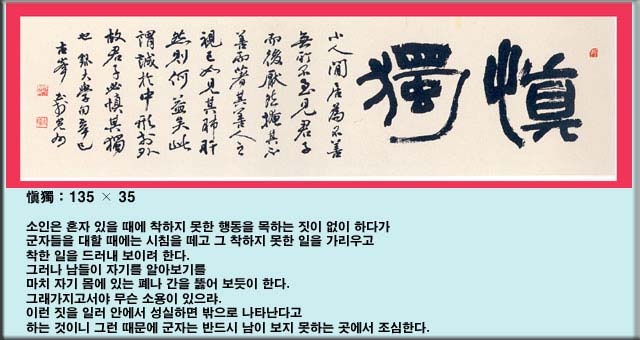 愼獨
小人閒居為不善
無所不至見君子
而後厭然揜其不
善而著其善人之
視己如見其肺肝
然則何益矣此
謂誠於中形於外
故君子必慎其獨
也 大学
古峯
愼獨 : 135 × 35
소인은 혼자 있을 때에 착하지 못한 행동을 목하는 짓이 없이 하다가
군자들을 대할 때에는 시침을 떼고 그 착하지 못한 일을 가리우고
착한 일을 드러내 보이려 한다.
그러나 남들이 자기를 알아보기를
마치 자기 몸에 있는 폐나 간을 뚫어 보듯이 한다.
그래가지고서야 무슨 소용이 있으랴.
이런 짓을 일러 안에서 성실하면 밖으로 나타난다고
하는 것이니 그런 때문에 군자는 반드시 남이 보지 못하는 곳에서 조심한다.